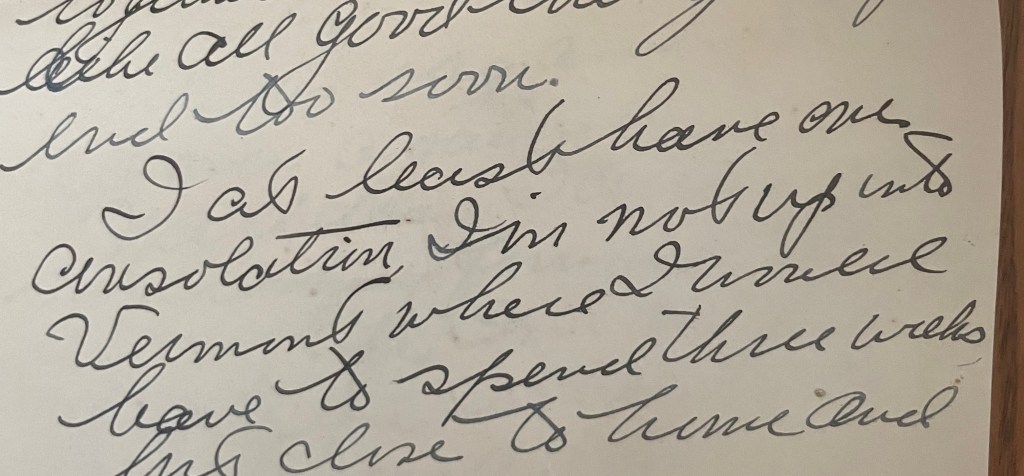 like all good
end too soon.
I at least have one
consolation, I'm not up into
Vermont where I would
have to spend three weeks
but close to home and